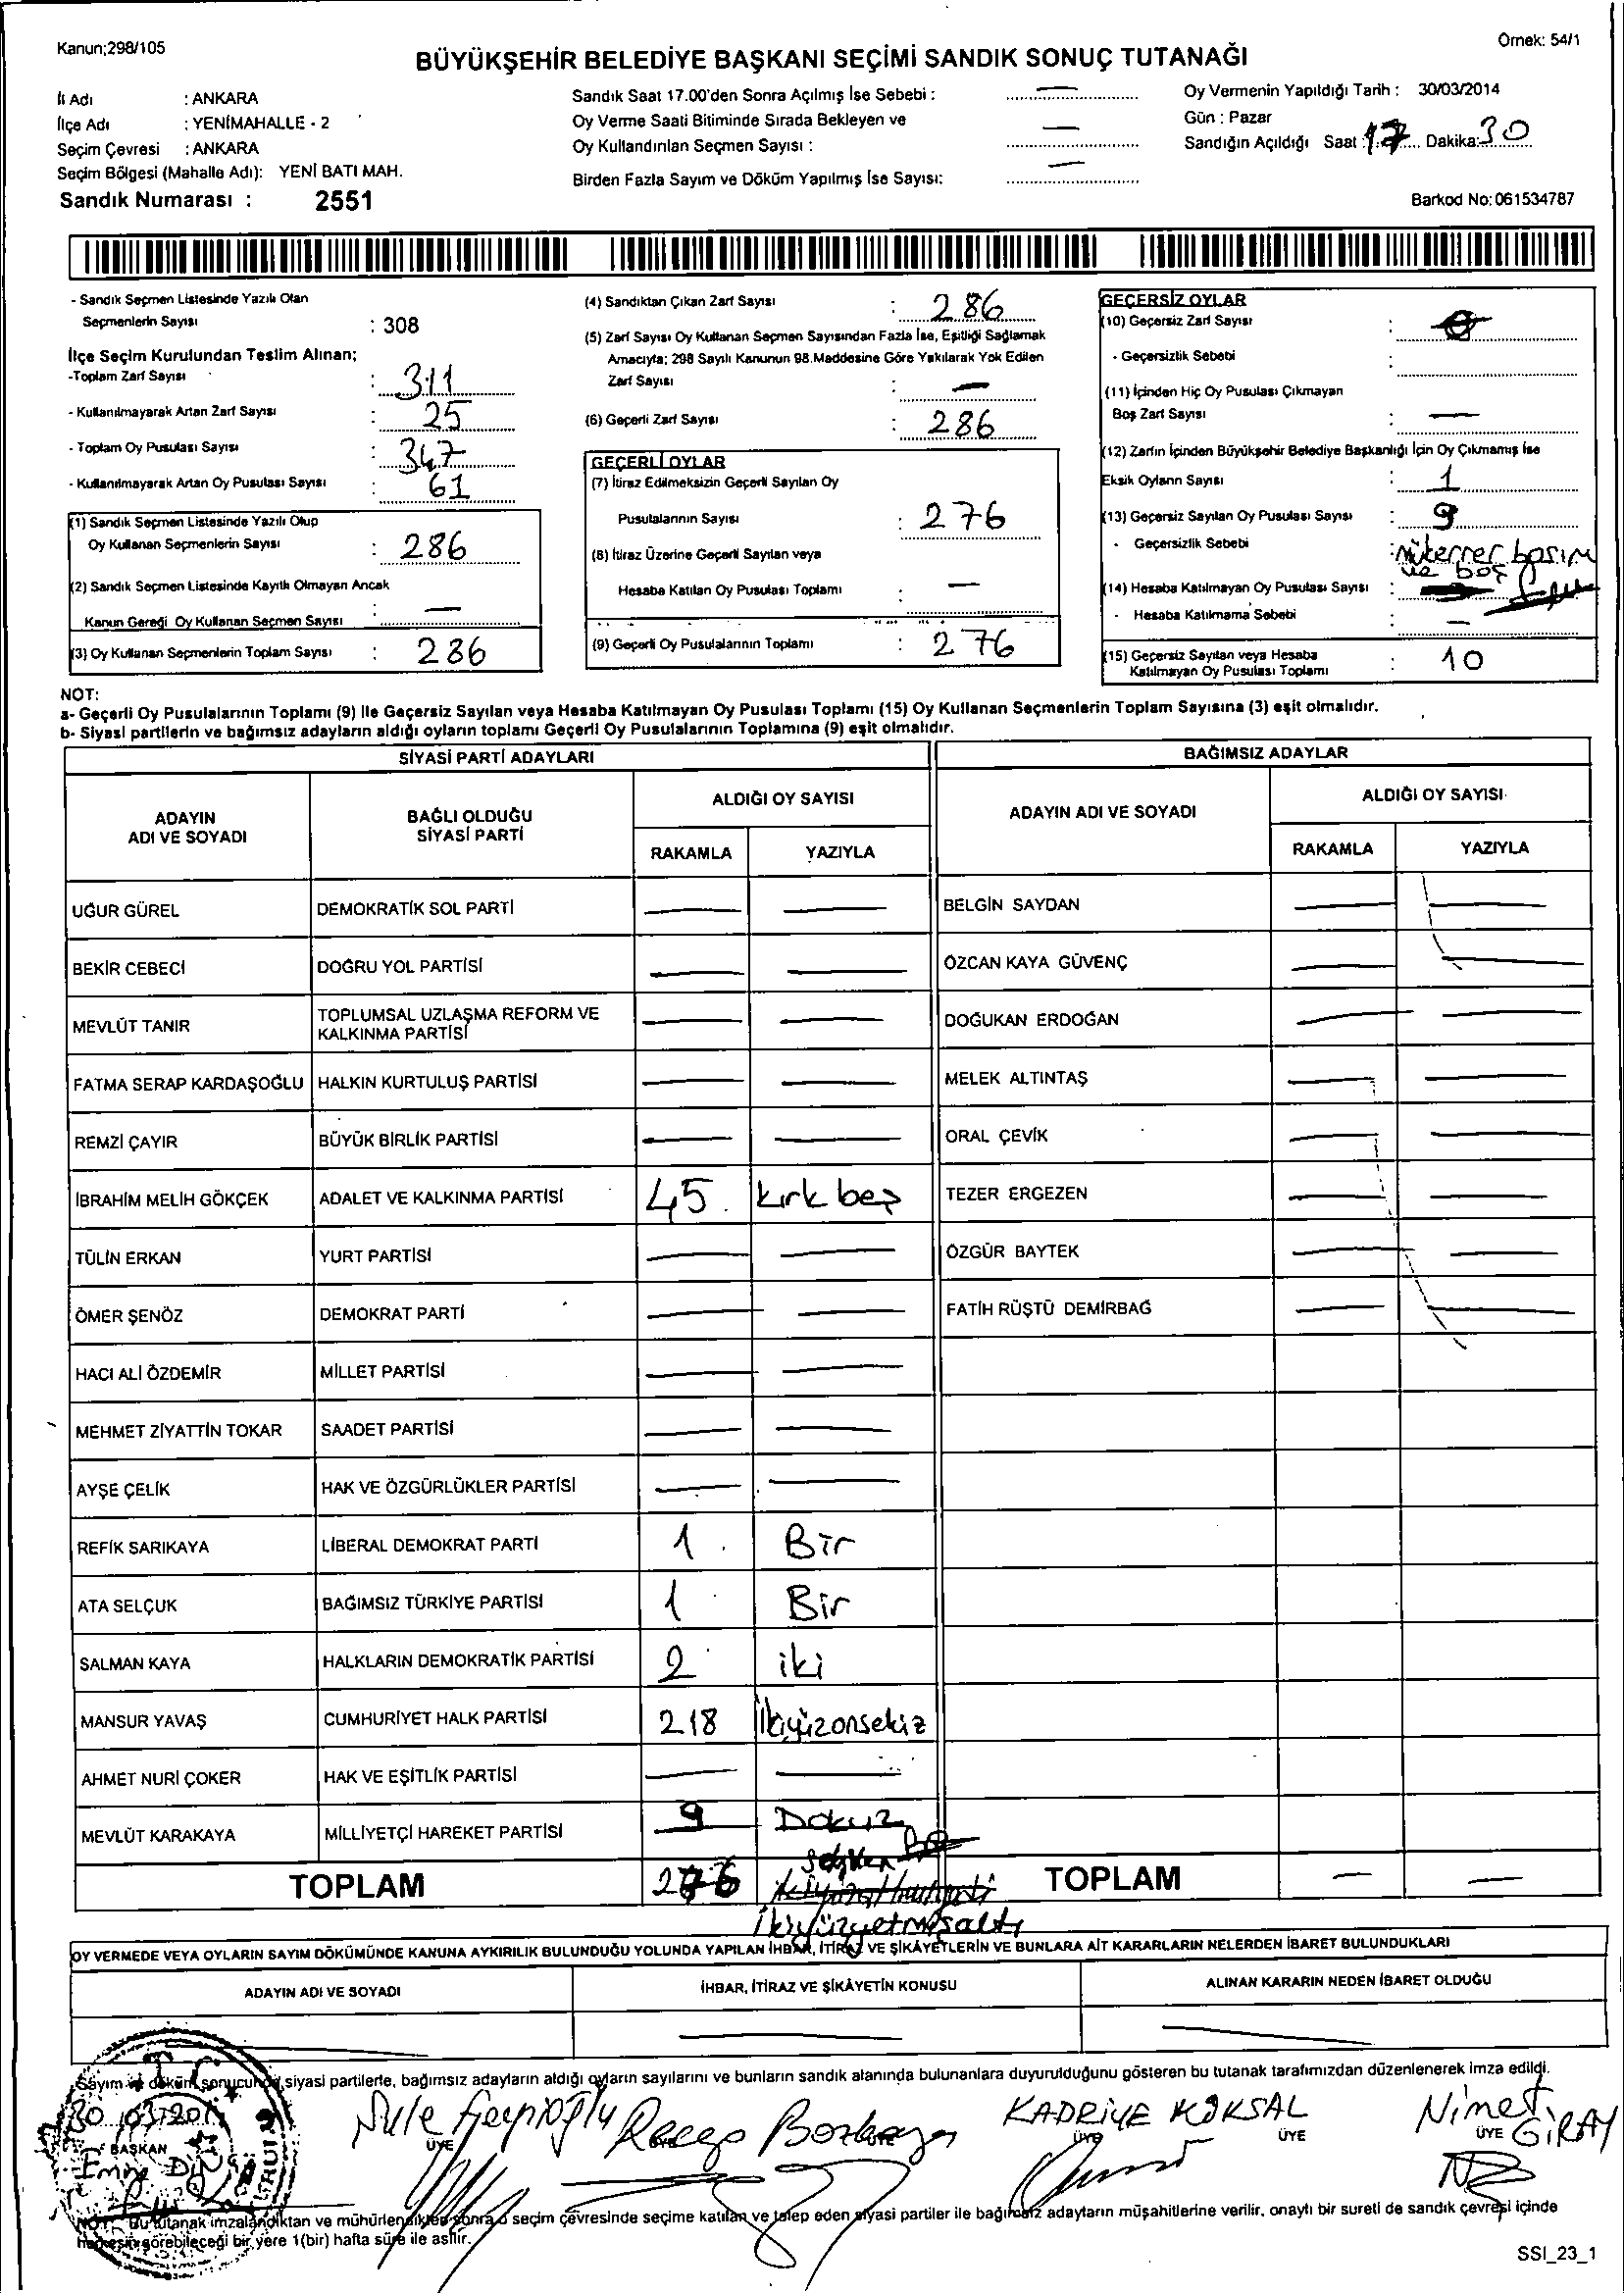 Kanun;298/105
Örnek: 54/1
BÜYÜKŞEHİR BELEDİYE BAŞKANI SEÇİMİ SANDIK SONUÇ TUTANAĞI
İl Adı : ANKARA
İlçe Adı : YENİMAHALLE - 2
Seçim Çevresi : ANKARA
Seçim Bölgesi (Mahalle Adı): YENİ BATI MAH.
Sandık Numarası : 2551
Sandık Saat 17.00'den Sonra Açılmış İse Sebebi : —
Oy Verme Saati Bitiminde Sırada Bekleyen ve
Oy Kullandırılan Seçmen Sayısı : —
Birden Fazla Sayım ve Döküm Yapılmış İse Sayısı: —
Oy Vermenin Yapıldığı Tarih : 30/03/2014
Gün : Pazar
Sandığın Açıldığı Saat : 17 Dakika: 30
Barkod No: 061534787
- Sandık Seçmen Listesinde Yazılı Olan
Seçmenlerin Sayısı : 308
İlçe Seçim Kurulundan Teslim Alınan;
-Toplam Zarf Sayısı : 311
- Kullanılmayarak Artan Zarf Sayısı : 25
- Toplam Oy Pusulası Sayısı : 347
- Kullanılmayarak Artan Oy Pusulası Sayısı : 61
(1) Sandık Seçmen Listesinde Yazılı Olup
Oy Kullanan Seçmenlerin Sayısı : 286
(2) Sandık Seçmen Listesinde Kayıtlı Olmayan Ancak
Kanun Gereği Oy Kullanan Seçmen Sayısı : —
(3) Oy Kullanan Seçmenlerin Toplam Sayısı : 286
(4) Sandıktan Çıkan Zarf Sayısı : 286
(5) Zarf Sayısı Oy Kullanan Seçmen Sayısından Fazla İse, Eşitliği Sağlamak
Amacıyla; 298 Sayılı Kanunun 98.Maddesine Göre Yakılarak Yok Edilen
Zarf Sayısı : —
(6) Geçerli Zarf Sayısı : 286
GEÇERLİ OYLAR
(7) İtiraz Edilmeksizin Geçerli Sayılan Oy
Pusulalarının Sayısı : 276
(8) İtiraz Üzerine Geçerli Sayılan veya
Hesaba Katılan Oy Pusulası Toplamı : —
(9) Geçerli Oy Pusulalarının Toplamı : 276
GEÇERSİZ OYLAR
(10) Geçersiz Zarf Sayısı :
- Geçersizlik Sebebi :
(11) İçinden Hiç Oy Pusulası Çıkmayan
Boş Zarf Sayısı : —
(12) Zarfın İçinden Büyükşehir Belediye Başkanlığı İçin Oy Çıkmamış İse
Eksik Oyların Sayısı : 1
(13) Geçersiz Sayılan Oy Pusulası Sayısı : 9
- Geçersizlik Sebebi : mükerrer basım
ve boş
(14) Hesaba Katılmayan Oy Pusulası Sayısı :
- Hesaba Katılmama Sebebi : —
(15) Geçersiz Sayılan veya Hesaba
Katılmayan Oy Pusulası Toplamı : 10
NOT:
a- Geçerli Oy Pusulalarının Toplamı (9) İle Geçersiz Sayılan veya Hesaba Katılmayan Oy Pusulası Toplamı (15) Oy Kullanan Seçmenlerin Toplam Sayısına (3) eşit olmalıdır.
b- Siyasi partilerin ve bağımsız adayların aldığı oyların toplamı Geçerli Oy Pusulalarının Toplamına (9) eşit olmalıdır.
SİYASİ PARTİ ADAYLARI
ADAYIN
ADI VE SOYADI
BAĞLI OLDUĞU
SİYASİ PARTİ
ALDIĞI OY SAYISI
RAKAMLA YAZIYLA
UĞUR GÜREL DEMOKRATİK SOL PARTİ — —
BEKİR CEBECİ DOĞRU YOL PARTİSİ — —
MEVLÜT TANIR TOPLUMSAL UZLAŞMA REFORM VE
KALKINMA PARTİSİ — —
FATMA SERAP KARDAŞOĞLU HALKIN KURTULUŞ PARTİSİ — —
REMZİ ÇAYIR BÜYÜK BİRLİK PARTİSİ — —
İBRAHİM MELİH GÖKÇEK ADALET VE KALKINMA PARTİSİ 45 kırk beş
TÜLİN ERKAN YURT PARTİSİ — —
ÖMER ŞENÖZ DEMOKRAT PARTİ — —
HACI ALİ ÖZDEMİR MİLLET PARTİSİ — —
MEHMET ZİYATTİN TOKAR SAADET PARTİSİ — —
AYŞE ÇELİK HAK VE ÖZGÜRLÜKLER PARTİSİ — —
REFİK SARIKAYA LİBERAL DEMOKRAT PARTİ 1 Bir
ATA SELÇUK BAĞIMSIZ TÜRKİYE PARTİSİ 1 Bir
SALMAN KAYA HALKLARIN DEMOKRATİK PARTİSİ 2 iki
MANSUR YAVAŞ CUMHURİYET HALK PARTİSİ 218 İkiyüzonsekiz
AHMET NURİ ÇOKER HAK VE EŞİTLİK PARTİSİ — —
MEVLÜT KARAKAYA MİLLİYETÇİ HAREKET PARTİSİ 9 Dokuz
TOPLAM 276
ikiyüzyetmişaltı
BAĞIMSIZ ADAYLAR
ADAYIN ADI VE SOYADI
ALDIĞI OY SAYISI
RAKAMLA YAZIYLA
BELGİN SAYDAN — —
ÖZCAN KAYA GÜVENÇ — —
DOĞUKAN ERDOĞAN — —
MELEK ALTINTAŞ — —
ORAL ÇEVİK — —
TEZER ERGEZEN — —
ÖZGÜR BAYTEK — —
FATİH RÜŞTÜ DEMİRBAĞ — —
TOPLAM — —
OY VERMEDE VEYA OYLARIN SAYIM DÖKÜMÜNDE KANUNA AYKIRILIK BULUNDUĞU YOLUNDA YAPILAN İHBAR, İTİRAZ VE ŞİKÂYETLERİN VE BUNLARA AİT KARARLARIN NELERDEN İBARET BULUNDUKLARI
ADAYIN ADI VE SOYADI İHBAR, İTİRAZ VE ŞİKÂYETİN KONUSU ALINAN KARARIN NEDEN İBARET OLDUĞU
— — —
Sayım ve döküm sonucunda siyasi partilerle, bağımsız adayların aldığı oyların sayılarını ve bunların sandık alanında bulunanlara duyurulduğunu gösteren bu tutanak tarafımızdan düzenlenerek imza edildi.
T.C.
30/03/201
BAŞKAN
Emre
Şule
ÜYE
Recep Bozkaya
ÜYE
KADRİYE KÖKSAL
ÜYE ÜYE
Nimet GİRAY
ÜYE
NOT: Bu tutanak imzalandıktan ve mühürlendikten sonra o seçim çevresinde seçime katılan ve talep eden siyasi partiler ile bağımsız adayların müşahitlerine verilir. onaylı bir sureti de sandık çevresi içinde
herkesin görebileceği bir yere 1(bir) hafta süre ile asılır.
SSI_23_1